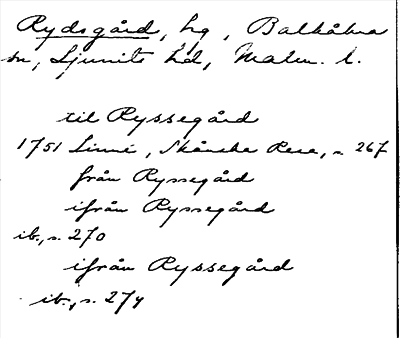 Rydsgård, hg, Balkåkra
sn, Ljunits hd, Malm. l.
til Ryssegård
1751 Linné, Skånska Resa, s. 267
från Ryssegård
ifrån Ryssegård
ib., s. 270
ifrån Ryssegård
ib., s. 274